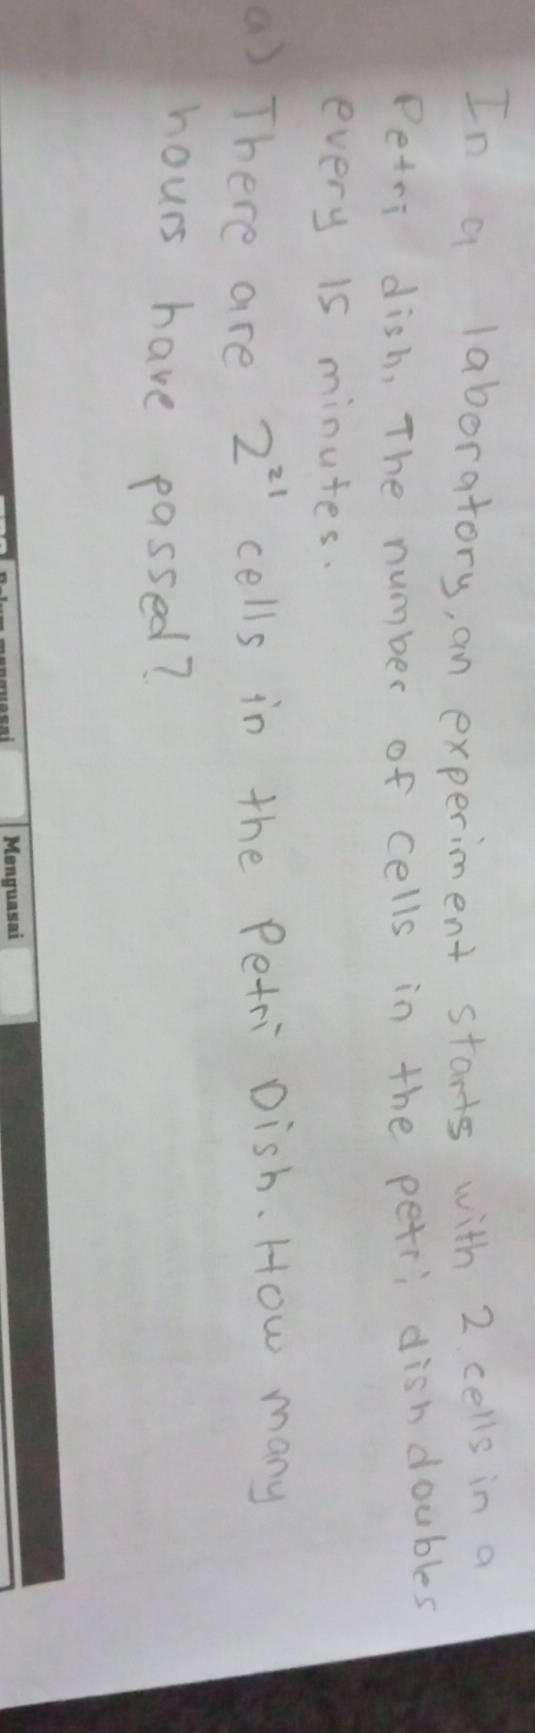 In a laboratory, an experiment starts with 2 cells in a
Petri dish. The number of cells in the petri dish doubles
every 15 minutes.
a) There are 2²¹ cells in the Petri Dish. How many
hours have passed?
Menguasai